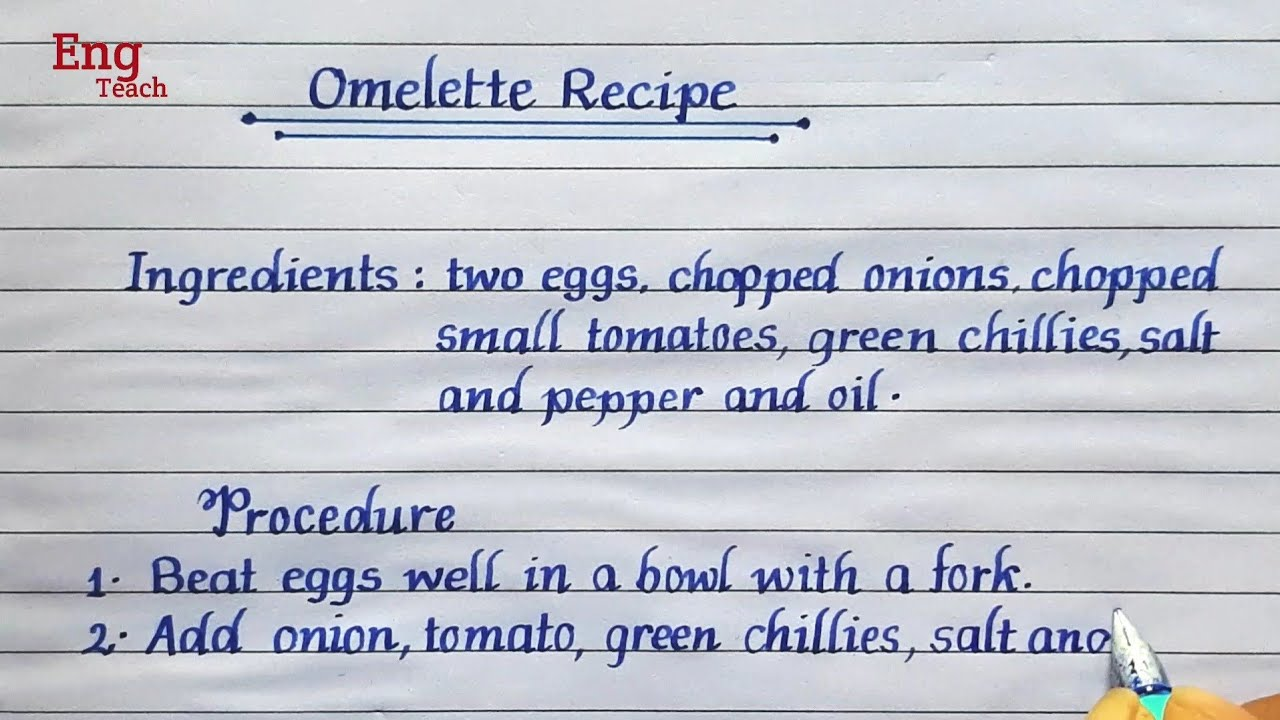 Eng
Teach
Omelette Recipe
Ingredients : two eggs, chopped onions, chopped
small tomatoes, green chillies, salt
and pepper and oil.
Procedure
1. Beat eggs well in a bowl with a fork.
2. Add onion, tomato, green chillies, salt and